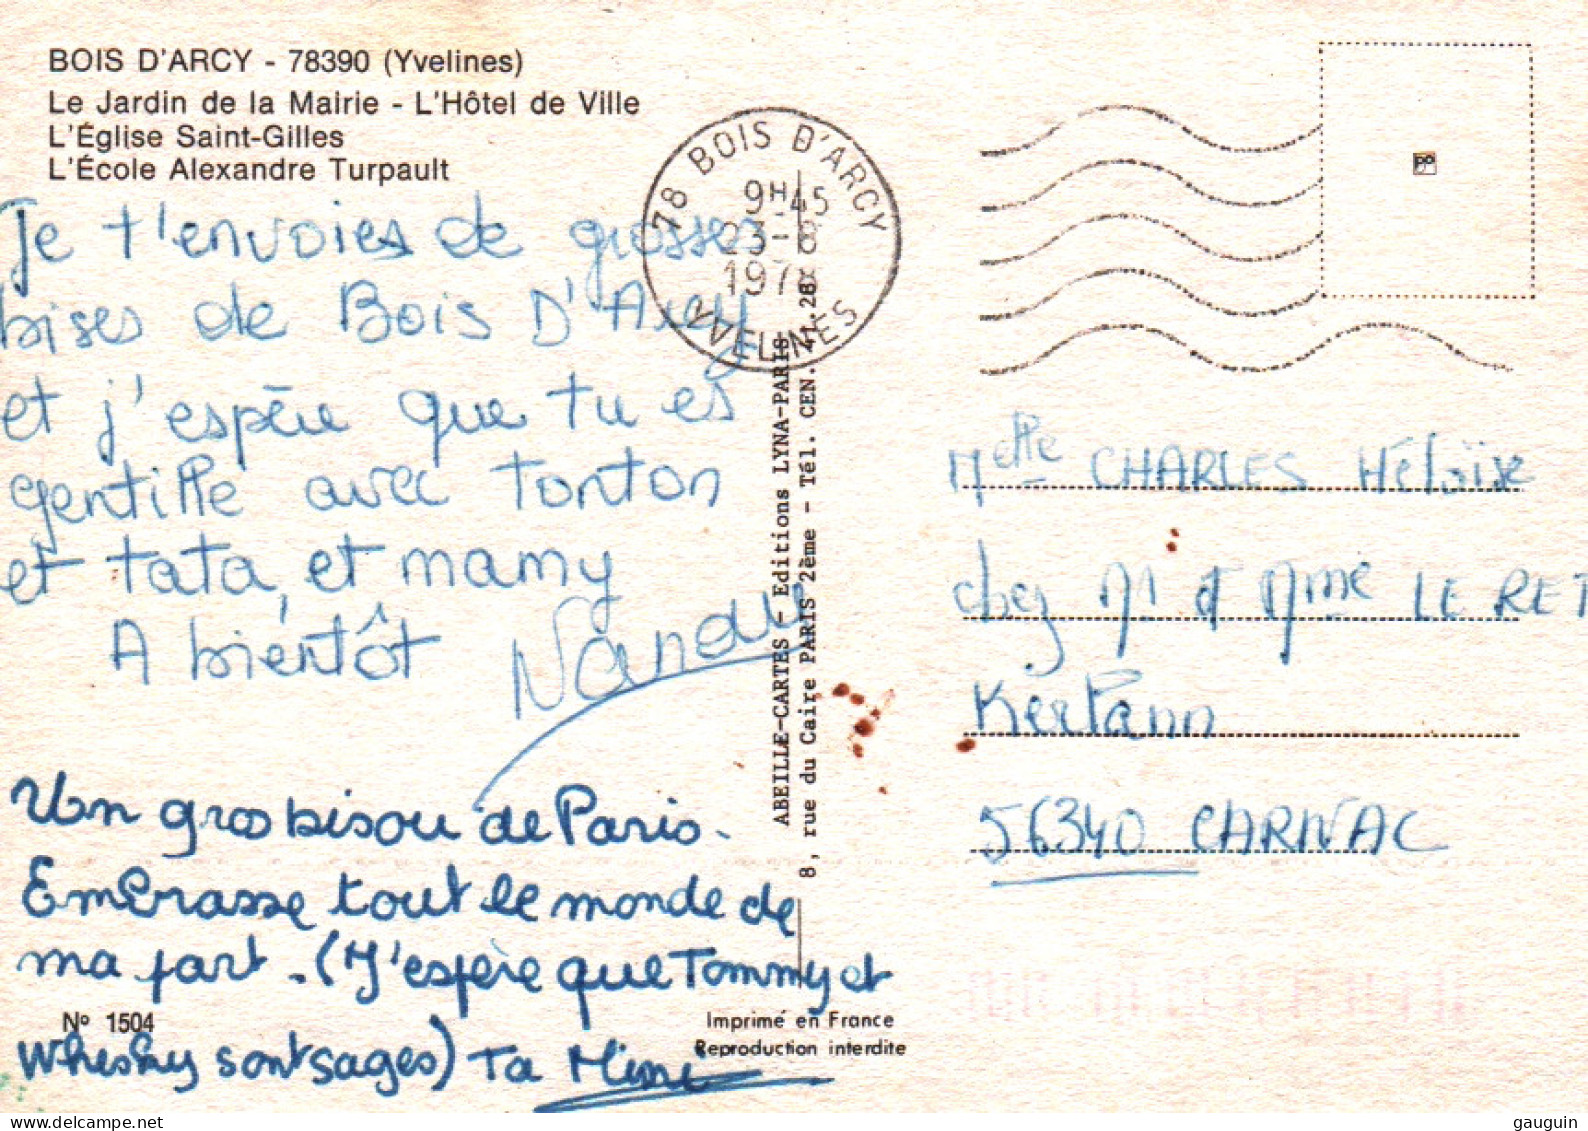 BOIS D'ARCY - 78390 (Yvelines)
Le Jardin de la Mairie - L'Hôtel de Ville
L'Église Saint-Gilles
L'École Alexandre Turpault
Je t'envoies de grosses
bises de Bois D'Arcy
et j'espère que tu es
gentille avec tonton
et tata, et mamy
A bientôt Nanou
Un gros bisou de Paris.
Embrasse tout le monde de
ma part. (J'espère que Tommy et
Whisky sont sages) Ta Mimi
N° 1504
Imprimé en France
Reproduction interdite
78 BOIS D'ARCY
9H45
23-8
1978
YVELINES
ABEILLE-CARTES - Editions LYNA-PARIS
8, rue du Caire PARIS 2ème - Tél. CEN. 41.28
Melle CHARLES Héloïse
chez Mr et Mme LE RET
Kerlann
56340 CARNAC
delcampe.net
gauguin